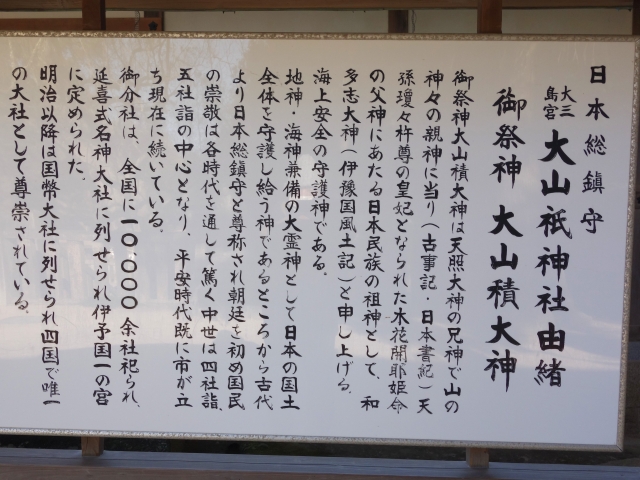 日本総鎮守
大三島宮 大山祇神社由緒
御祭神 大山積大神
御祭神大山積大神は天照大神の兄神で山の
神々の親神に当り(古事記・日本書紀)天
孫瓊々杵尊の皇妃となられた木花開耶姫命
の父神にあたる日本民族の祖神として、和
多志大神(伊豫国風土記)と申し上げる。
海上安全の守護神である。
地神・海神兼備の大霊神として日本の国土
全体を守護し給う神であるところから古代
より日本総鎮守と尊称され朝廷を初め国民
の崇敬は各時代を通して篤く中世は四社詣、
五社詣の中心となり、平安時代既に市が立
ち現在に続いている。
御分社は、全国に一〇〇〇〇余社祀られ、
延喜式名神大社に列せられ伊予国一の宮
に定められた。
明治以降は国幣大社に列せられ四国で唯一
の大社として尊崇されている。